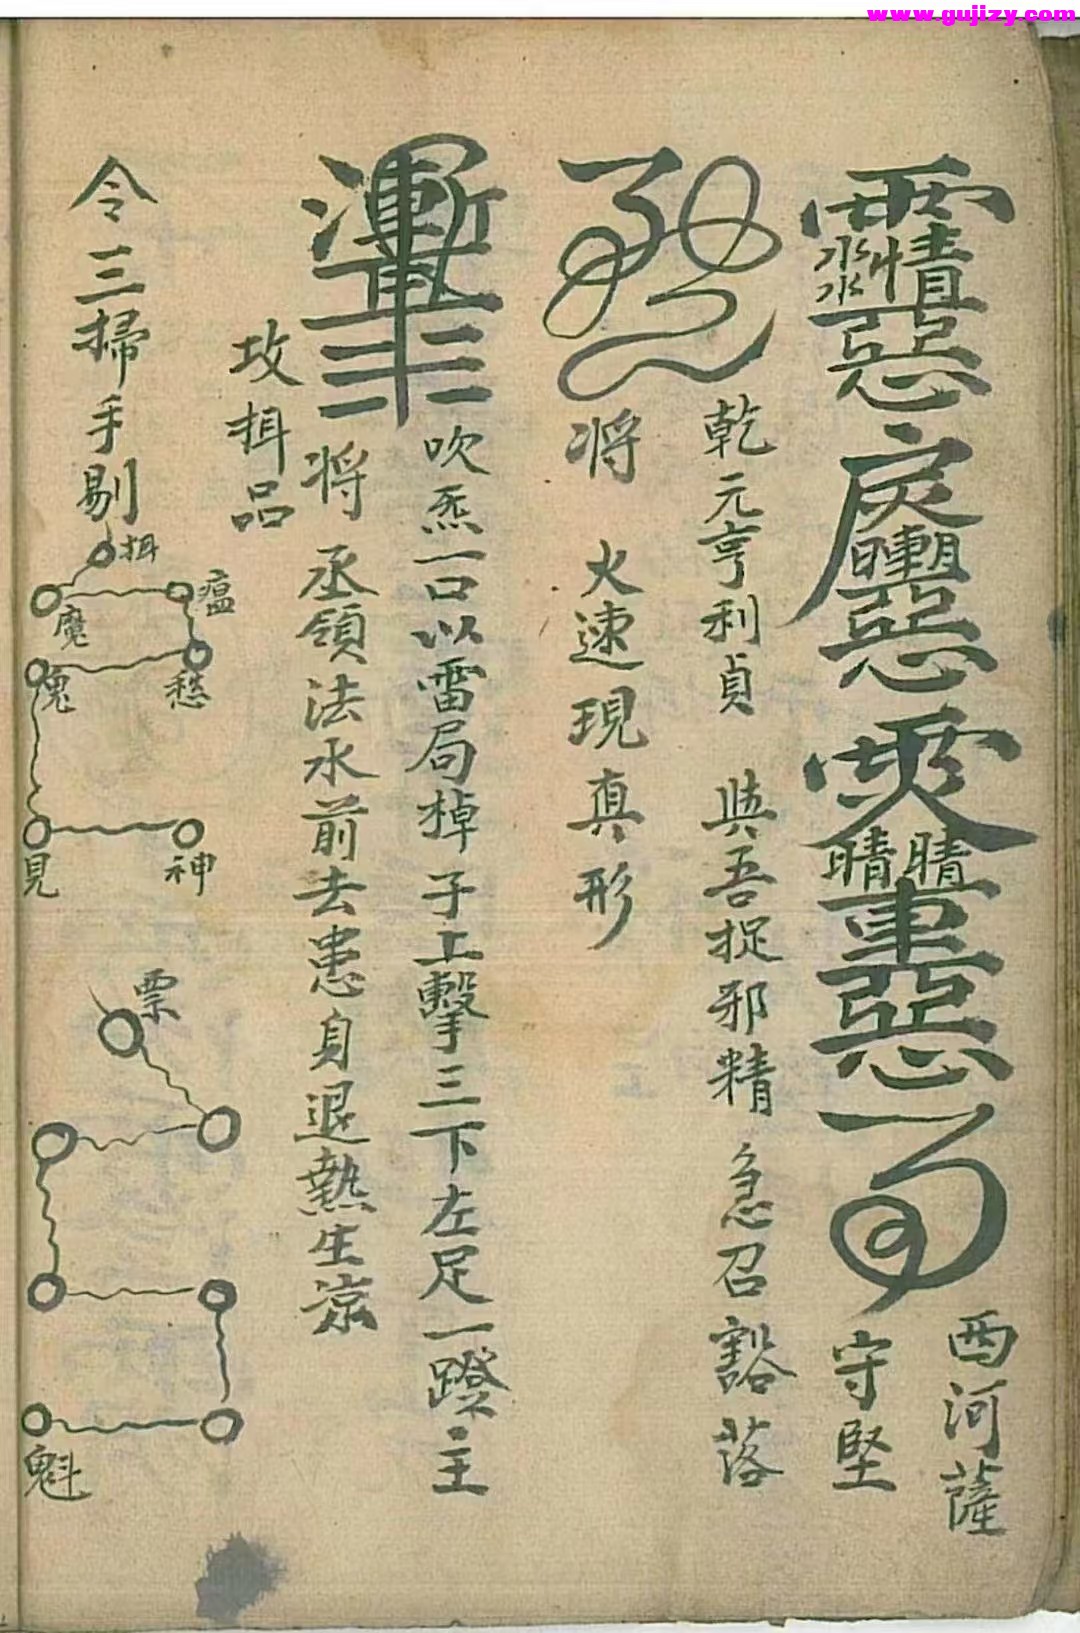 www.gujizy.com
西河薩
守堅
乾元亨利貞 與吾捉邪精 急召豁落
将 火速現真形
吹炁一口以雷局棹子上擊三下左足一蹬主
将 丞領法水前去患身退熱生凉
攻揖品
令三掃手剔
揖
瘟
魔
愁
鬼
見
神
票
魁